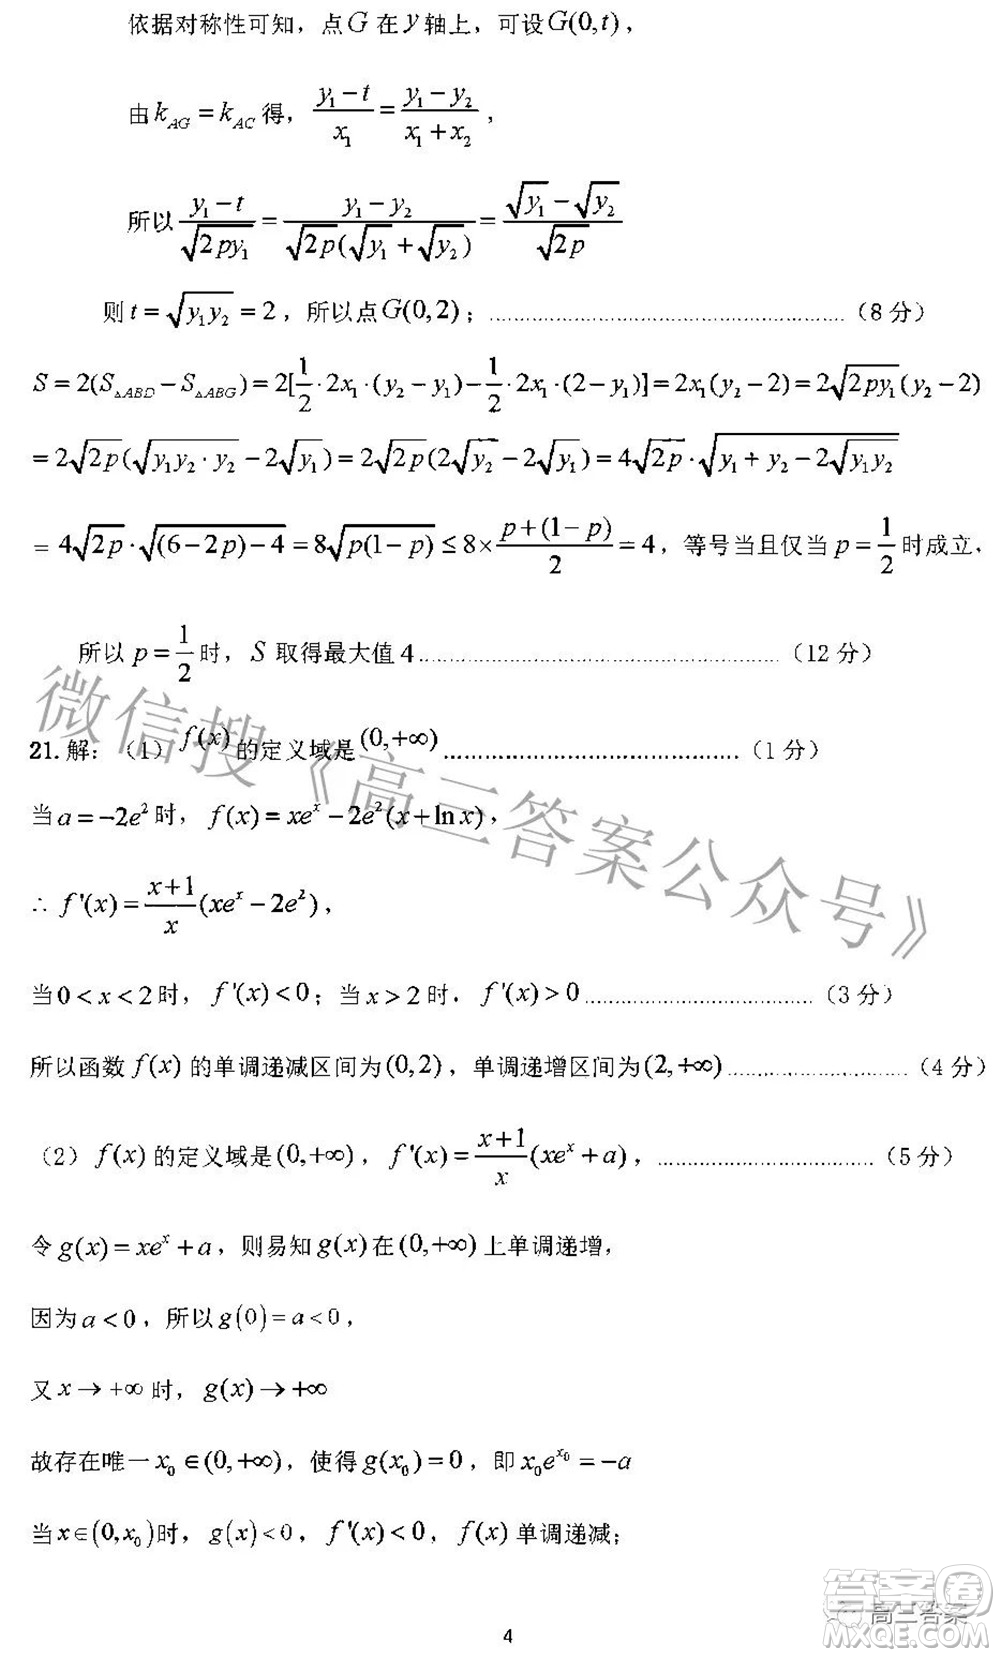 依据对称性可知，点 G 在 y 轴上，可设 G(0,t)，
由 k_{AG} = k_{AC} 得，\frac{y_1-t}{x_1} = \frac{y_1-y_2}{x_1+x_2}，
所以 \frac{y_1-t}{\sqrt{2py_1}} = \frac{y_1-y_2}{\sqrt{2p}(\sqrt{y_1}+\sqrt{y_2})} = \frac{\sqrt{y_1}-\sqrt{y_2}}{\sqrt{2p}}
则 t = \sqrt{y_1y_2} = 2，所以点 G(0,2)；……（8 分）
S = 2(S_{△ABD} - S_{△ABG}) = 2[\frac{1}{2}·2x_1·(y_2-y_1) - \frac{1}{2}·2x_1·(2-y_1)] = 2x_1(y_2-2) = 2\sqrt{2py_1}(y_2-2)
= 2\sqrt{2p}(\sqrt{y_1y_2·y_2} - 2\sqrt{y_1}) = 2\sqrt{2p}(2\sqrt{y_2} - 2\sqrt{y_1}) = 4\sqrt{2p}·\sqrt{y_1+y_2-2\sqrt{y_1y_2}}
= 4\sqrt{2p}·\sqrt{(6-2p)-4} = 8\sqrt{p(1-p)} ≤ 8×\frac{p+(1-p)}{2} = 4，等号当且仅当 p = \frac{1}{2} 时成立．
所以 p = \frac{1}{2} 时，S 取得最大值 4……（12 分）
21.解：（1）f(x) 的定义域是 (0,+∞)……（1 分）
当 a = -2e^2 时，f(x) = xe^x - 2e^2(x+ln x)，
∴ f'(x) = \frac{x+1}{x}(xe^x - 2e^2)，
当 0<x<2 时，f'(x)<0；当 x>2 时．f'(x)>0……（3 分）
所以函数 f(x) 的单调递减区间为 (0,2)，单调递增区间为 (2,+∞)……（4 分）
（2）f(x) 的定义域是 (0,+∞)，f'(x) = \frac{x+1}{x}(xe^x + a)，……（5 分）
令 g(x) = xe^x + a，则易知 g(x) 在 (0,+∞) 上单调递增，
因为 a<0，所以 g(0) = a<0，
又 x → +∞ 时，g(x) → +∞
故存在唯一 x_0 ∈ (0,+∞)，使得 g(x_0) = 0，即 x_0e^{x_0} = -a
当 x∈(0,x_0) 时，g(x)<0，f'(x)<0，f(x) 单调递减；
4
微信搜《高三答案公众号》
高三答案
答案圈
MXQE.COM